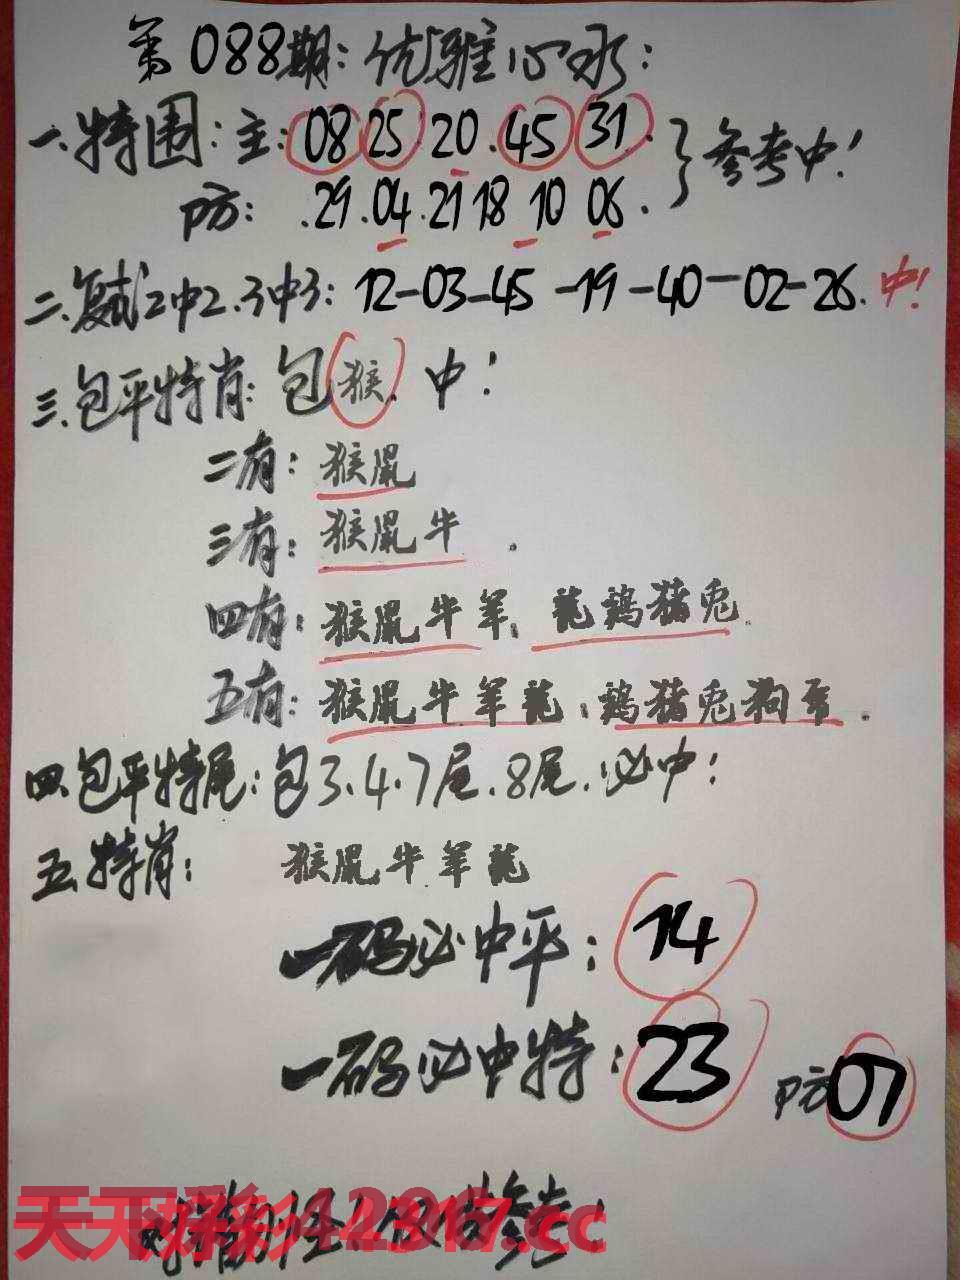 第088期:优雅心水:
一.特围:主:08 25 20.45 31.}参考中!
防:.29.04.21 18 10 06.
二.复式2中2.3中3:12-03-45-19-40-02-26.中!
三.包平特肖:包猴.中!
二有:猴鼠
三有:猴鼠牛.
四有:猴鼠牛羊.龍鷄豬兔.
五有:猴鼠牛羊龍:鷄豬兔狗.
四.包平特尾:包3.4.7尾.8尾.必中!
五.特肖:猴鼠牛羊龍
一码必中平:14
一码必中特:23 防07
天下彩 .cc